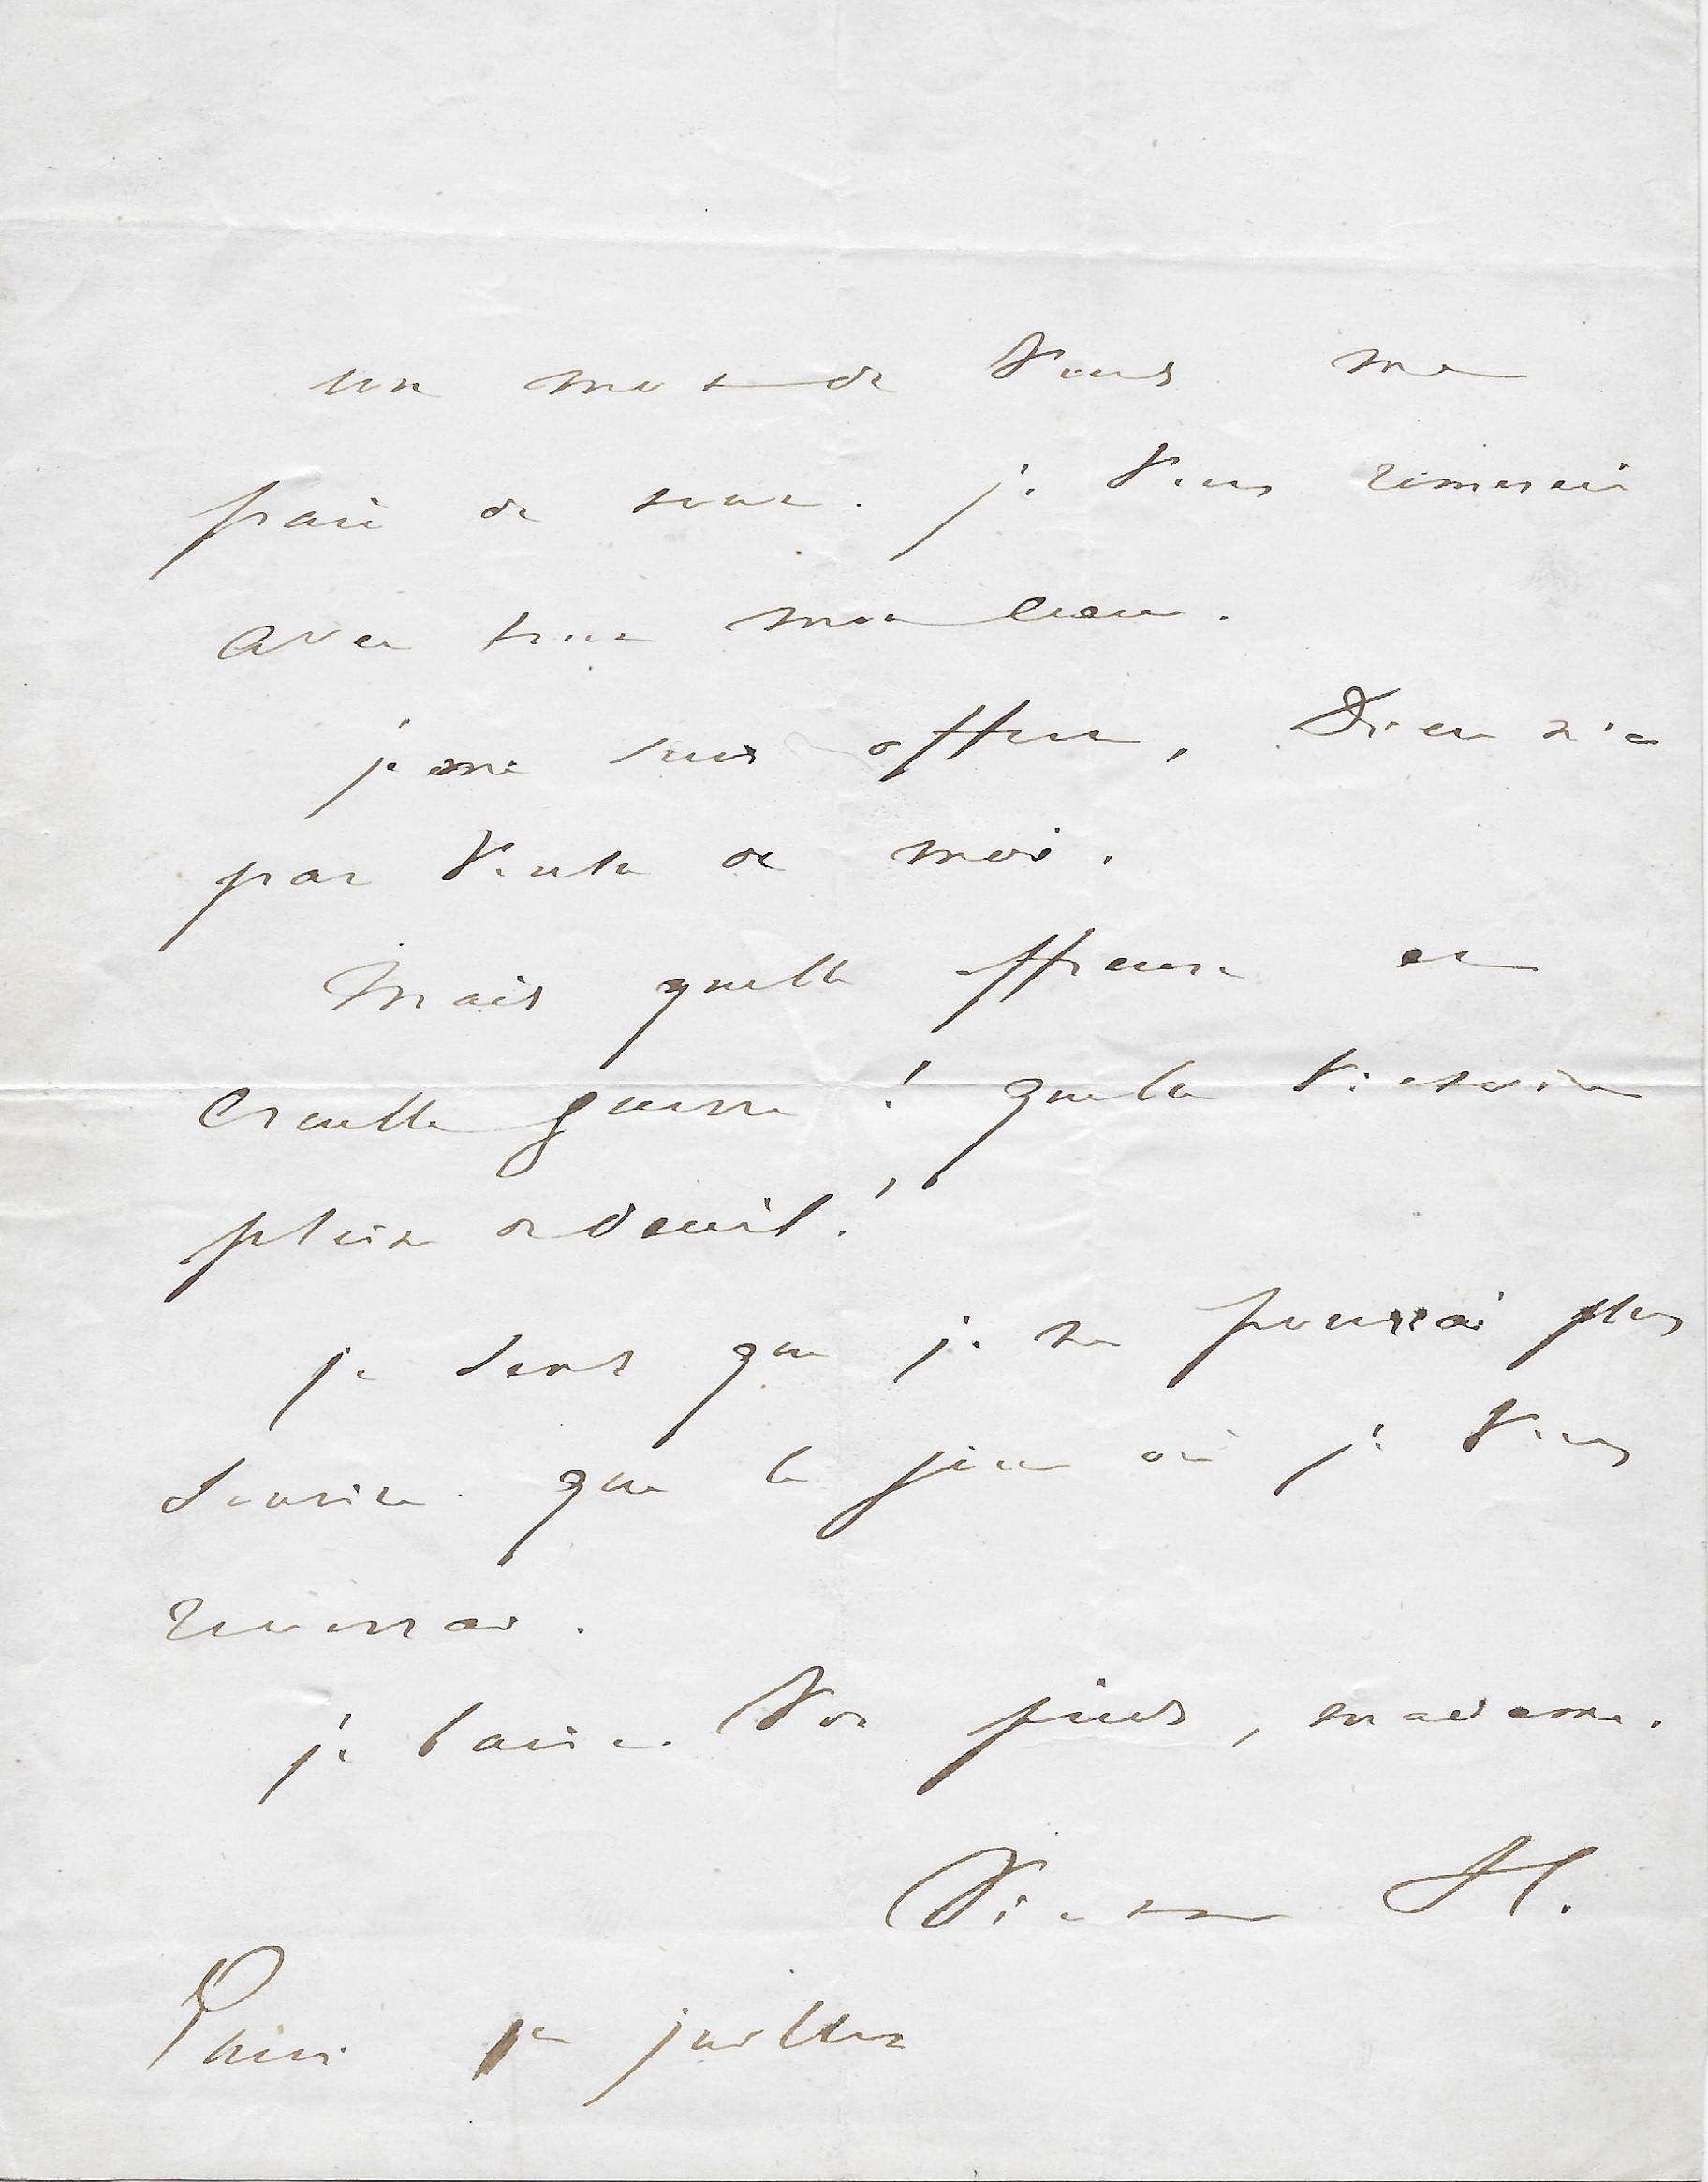 un mot de vous me
paie de tout. je vous remercie
avec tout mon coeur.
je me suis offert, Dieu n'a
pas voulu de moi.
Mais quelle affreuse et
cruelle guerre ! quelle victoire
pleine de deuil !
je sens que je ne pourrai plus
sourire que le jour où je vous
reverrai.
je baise vos pieds, madame.
Victor H.
Paris 1er juillet